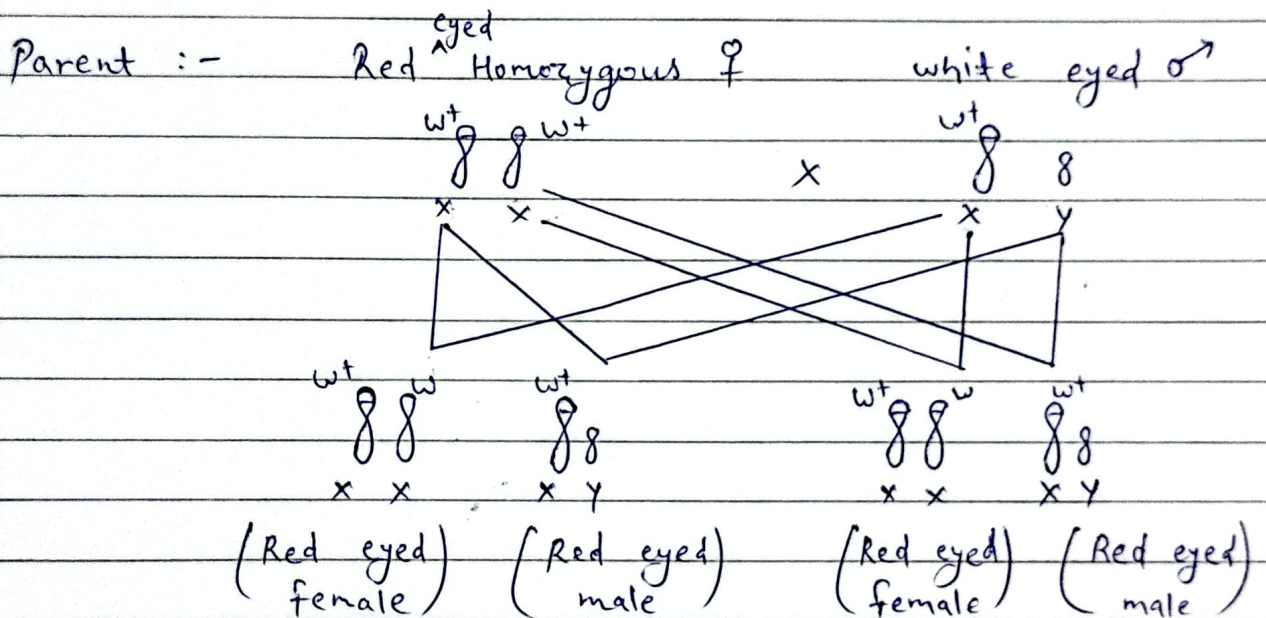 Parent :- Red eyed Homozygous ♀ white eyed ♂
w+ w+ w+
X
x x x y
w+ w w+ w+ w w+
x x x y x x x y
(Red eyed female) (Red eyed male) (Red eyed female) (Red eyed male)